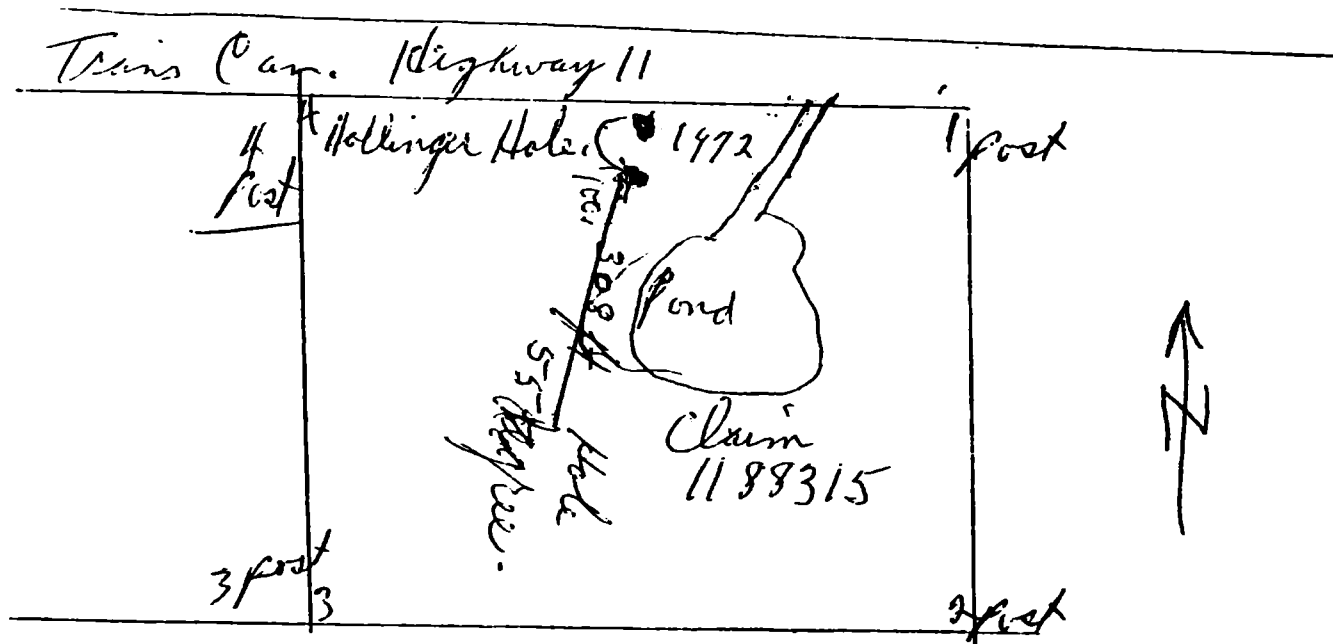 Trans Can. Highway 11
4
4 post
Hollinger Hole.
1972
1 post
100'
308 ft
Pond
55 degree.
Hole
Claim
1188315
N
3 post
3
2 post